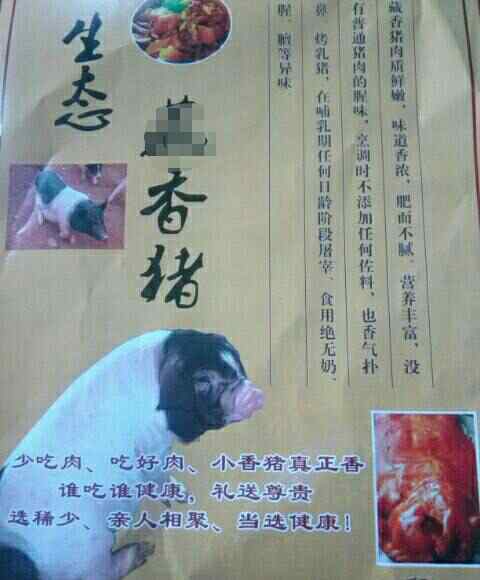 生态
香猪
藏香猪肉质鲜嫩，味道香浓，肥而不腻、营养丰富，没
有普通猪肉的腥味，烹调时不添加任何佐料，也香气扑
鼻、烤乳猪，在哺乳期任何日龄阶段屠宰、食用绝无奶、
腥、膻等异味
少吃肉、吃好肉、小香猪真正香
谁吃谁健康，礼送尊贵
选稀少、亲人相聚、当选健康！